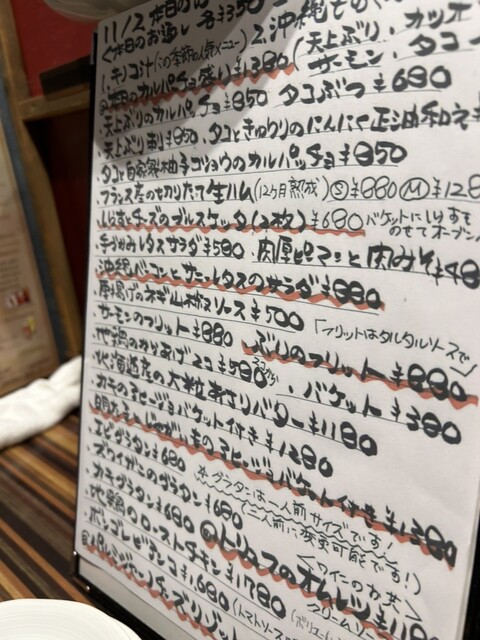 11/2 本日の
<本日のお通し 各¥350
2.沖縄もずく
1.キノコ汁(この季節の人気メニュー)
(天上ぶり、カツオ
サーモン、タコ
@本日のカルパッチョ盛り¥1380
・天上ぶりのカルパッチョ¥850 タコぶつ¥680
・天上ぶり刺¥850 ・タコときゅうりのにんにく正油和え
・タコと自家製柚子ゴショウのカルパッチョ¥850
・フランス産の切りたて生ハム(12ヶ月熟成) Ⓢ¥880 Ⓜ¥128
・しらすとチーズのブルスケッタ(2枚)¥680 バケットにしらすを
のせてオーブン
・手ちぎりレタスサラダ¥580 ・肉厚ピーマンと肉みそ¥48
・沖縄ベーコンとサニーレタスのサラダ¥880
・厚揚げのネギ山椒ソース¥500
「フリットはタルタルソースで」
・サーモンのフリット¥880 ・ぶりのフリット¥880
・地鶏のからあげ2コ¥580 2コから ・バケット¥380
・北海道産の大粒あさりバター¥1180
・カキのアヒージョバケット付き¥1280
・明太子とじゃがいものアヒージョバケット付き¥1380
・エビグラタン¥680
*グラタンは一人前サイズです!
・ズワイガニのグラタン¥680
(二人前に変更可能です!)
・カキグラタン¥680
<ワインのお共>
・地鶏のローストチキン¥1780
@トリュフのオムレツ¥110
・ボンゴレビアンコ¥1,680
(トマトソース
クリーム
@パルミジャーノチーズリゾット